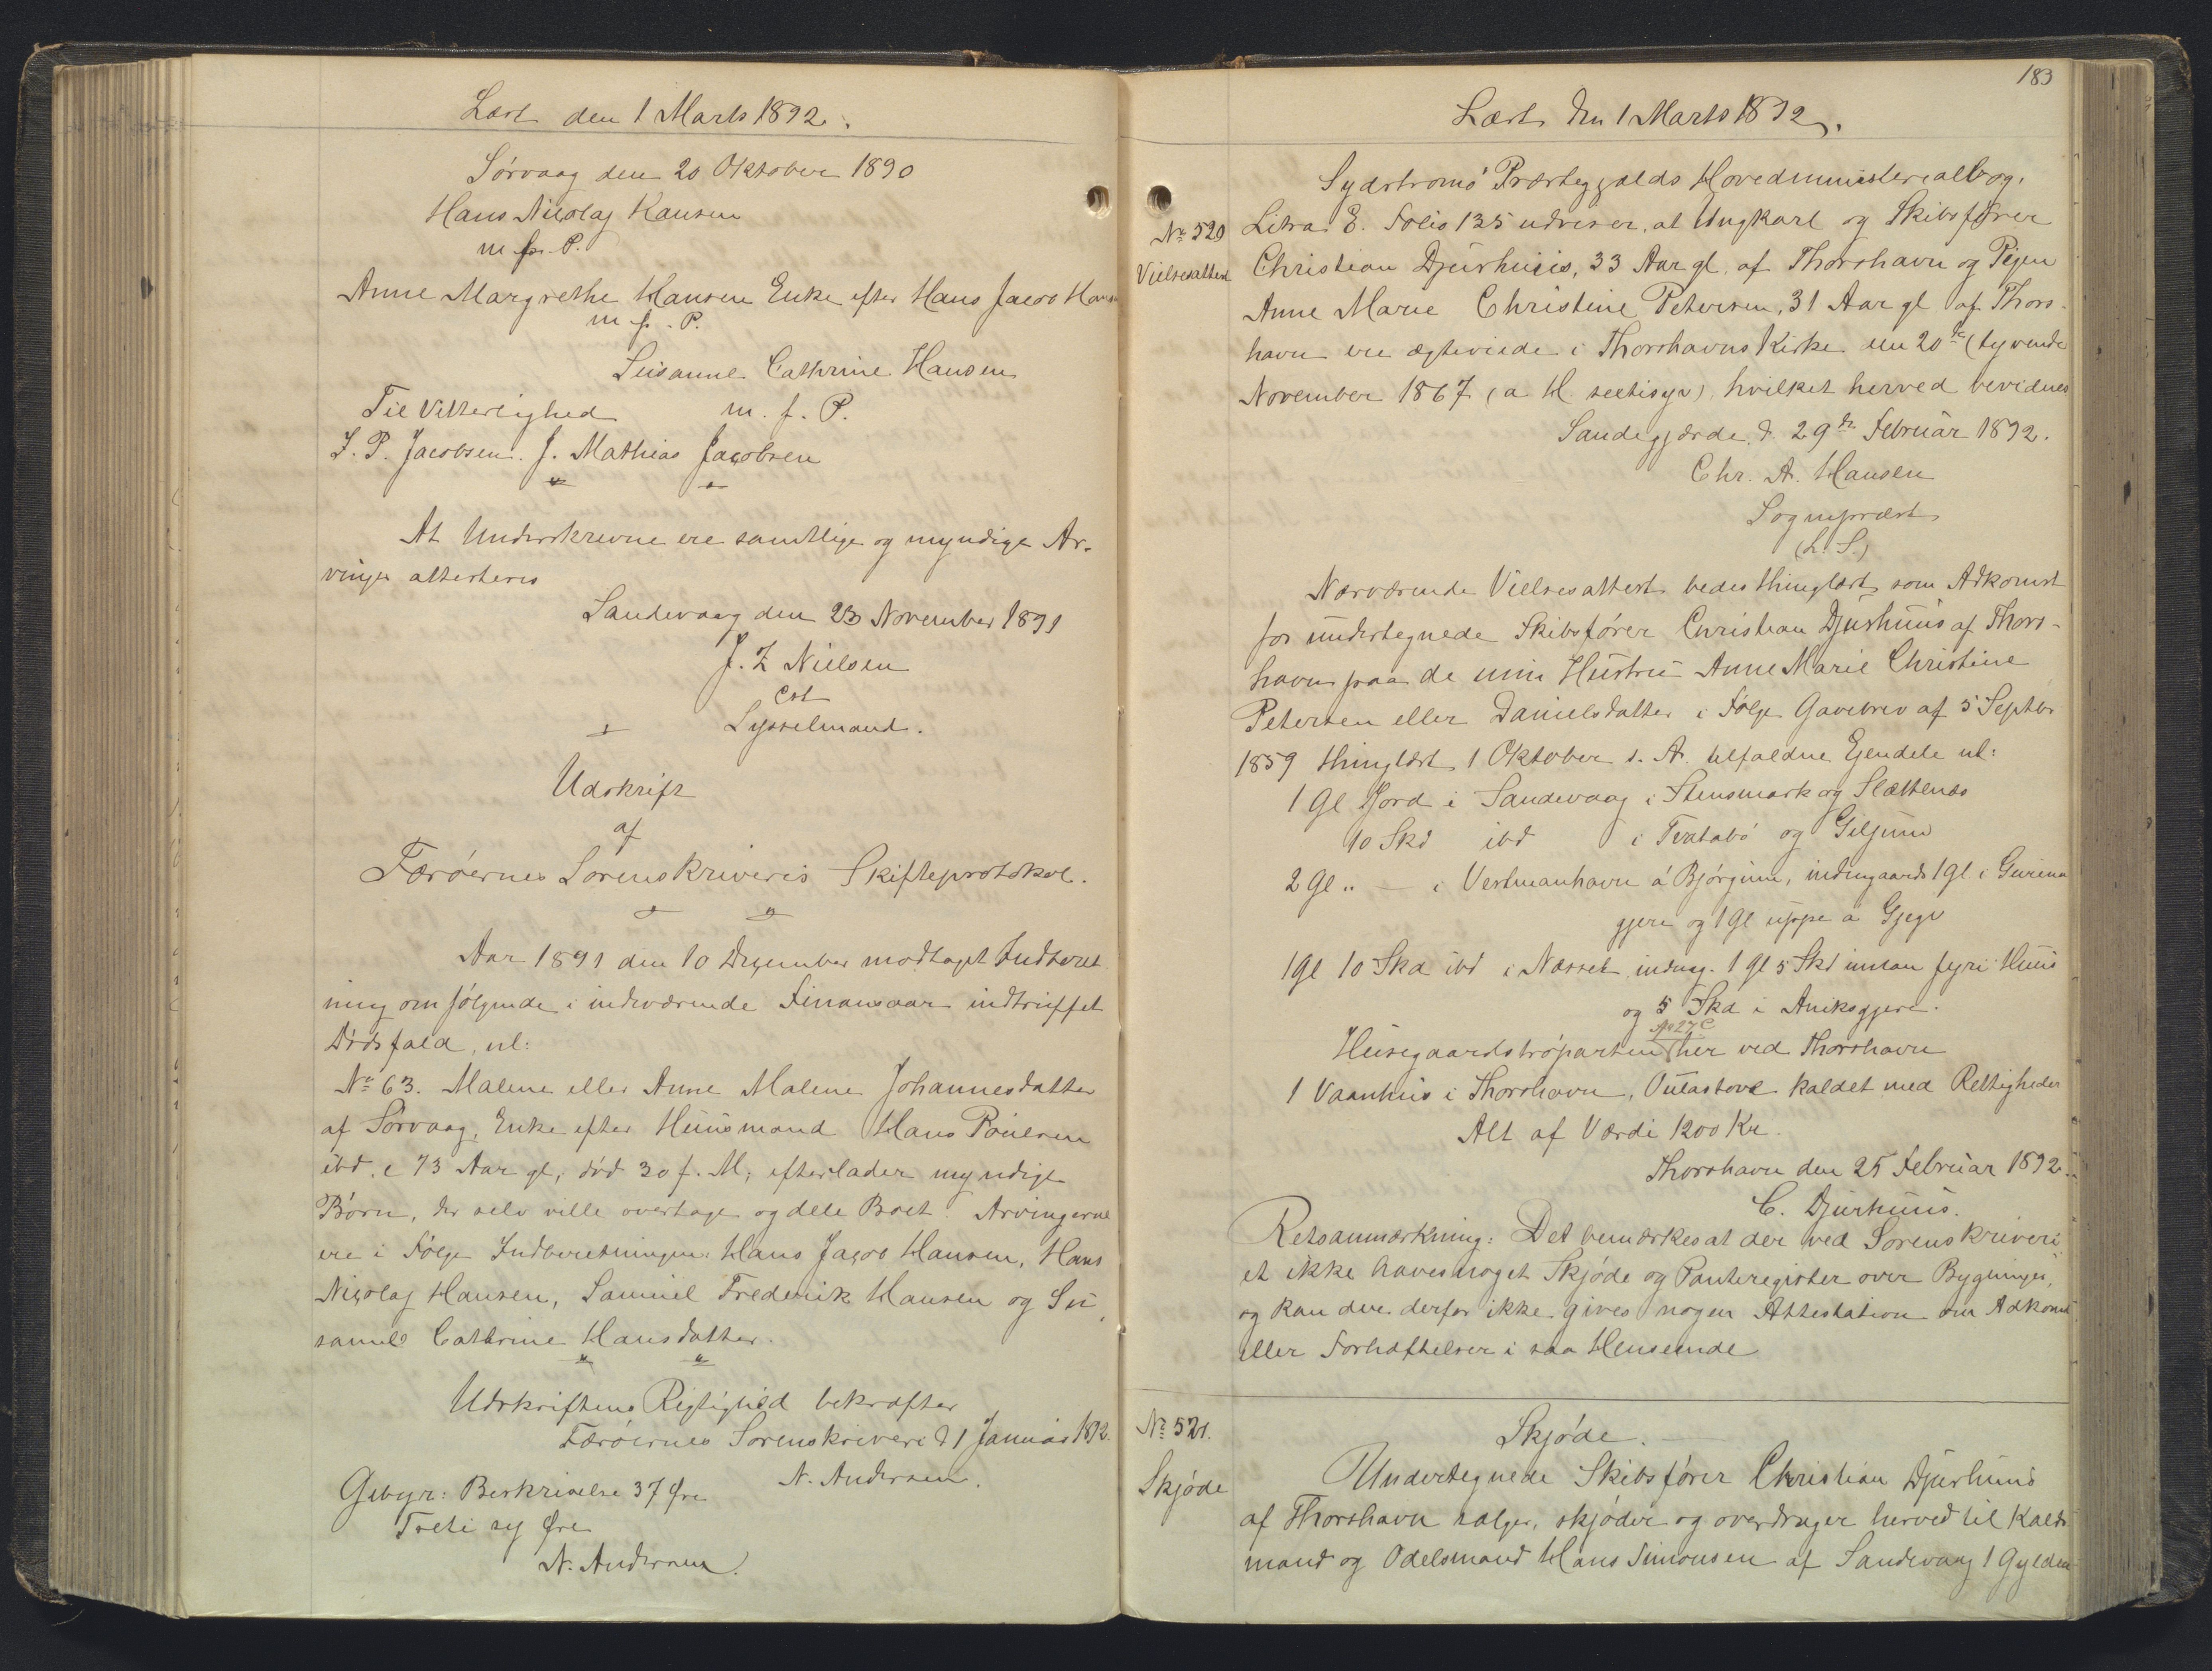 Læst den 1 Marts 1892.
Sørvaag den 20 Oktober 1890
Hans Nicolaj Hansen
m. f. P.
Anne Margrethe Hansen Enke efter Hans Jacob Hansen
m. f. P.
Susanne Cathrine Hansen
Til Vitterlighed m. f. P.
J. P. Jacobsen. J. Mathias Jacobsen
At Underskrevne ere samtlige og myndige Ar-
vinger attesteres
Sandevaag den 23 November 1891
J. Z Nielsen
cst
Sysselmand.
Udskrift
af
Færøernes Sorenskriveris Skifteprotokol.
Aar 1891 den 10 December modtaget Indberet
ning om følgende i indeværende Finansaar indtruffet
Dødsfald, nl:
No 63. Malene eller Anne Malene Johannesdatter
af Sørvaag, Enke efter Huusmand Hans Poulsen
ibd. c 73 Aar gl, død 30 f. M, efterlader myndige
Børn, der selv ville overtage og dele Boet. Arvingerne
ere i Følge Indberetningen: Hans Jacob Hansen, Hans
Nicolaj Hansen, Samuel Frederik Hansen og Su
sanne Cathrine Hansdatter.
Udskriftens Rigtighed bekræfter
Færøernes Sorenskriveri d 1 Januar 1892.
N. Andersen.
Gebyr: Beskrivelse 37 Øre
Treti syv Øre
N. Andersen.
183
Læst den 1 Marts 1892.
Sydstromø Præstegjælds Hovedministerialbog,
No 520 Litra E. Folio 135 udviser, at Ungkarl og Skibsfører
Vielsesattest Christian Djurhuus, 33 Aar gl. af Thorshavn og Pigen
Anne Marie Christine Petersen, 31 Aar gl af Thors-
havn ere ægteviede i Thorshavns Kirke den 20de (tyvende
November 1867 (a H seetisyv), hvilket herved bevidnes
Sandegjærde, d. 29de Februar 1892.
Chr. A. Hansen
Sognepræst
(L. S.)
Nærværende Vielsesattest bedes thinglæst som Adkomst
for undertegnede Skibsfører Christian Djurhuus af Thors-
havn paa de min Hustru Anne Marie Christine
Petersen eller Danielsdatter i Følge Gavebrev af 5 Septbr
1859 thinglæst 1 Oktober s. A. tilfaldne Ejendele nl:
1 Gl Jord i Sandevaag i Stensmark og Slættenæs
10 Skd ibd i Tvatabø og Giljum
2 Gl " — i Vestmanhavn á Bjørgum, indengaards 1 Gl i
gjere og 1 Gl uppe a Gjegv
1 Gl 10 Skd ibd i Nesset, indeng. 1 Gl 5 Skd innan fyri Huus
og 5 Skd i Aniksgjere.
No 27 C
Husegaardstrøparten her ved Thorshavn
1 Vaanhus i Thorshavn, Outastove kaldet med Rettigheder
Alt af Værdi 1200 Kr.
Thorshavn den 25 Februar 1892.
C. Djurhuus.
Retsanmærkning: Det bemærkes at der ved Sorenskriveri
et ikke haves noget Skjøde og Panteregister over Bygninger,
og kan der derfor ikke gives nogen Attestation om Adkomst
eller Forhæftelser i saa Henseende
No 521. Skjøde.
Skjøde
Undertegnede Skibsfører Christian Djurhuus
af Thorshavn sælger, skjøder og overdrager herved til Kalds
mand og Odelsmand Hans Simonsen af Sandevaag 1 Gylden